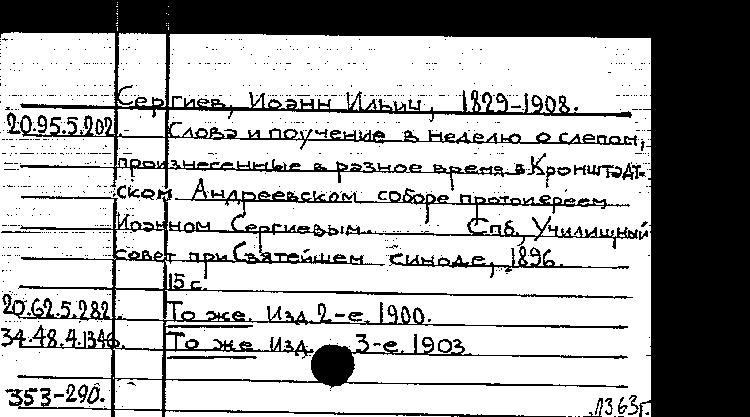 Сергиев, Иоанн Ильич, 1829-1908.
20.95.5.202. Слова и поучение в неделю о слепом,
произнесенные в разное время в Кронштадт-
ском Андреевском соборе протоиереем
Иоанном Сергиевым. Спб, Училищный
совет при Святейшем синоде, 1896.
15 с.
20.62.5.282. То же. Изд. 2-е. 1900.
34.48.4.1346. То же Изд. 3-е. 1903.
353-290. 1363г.